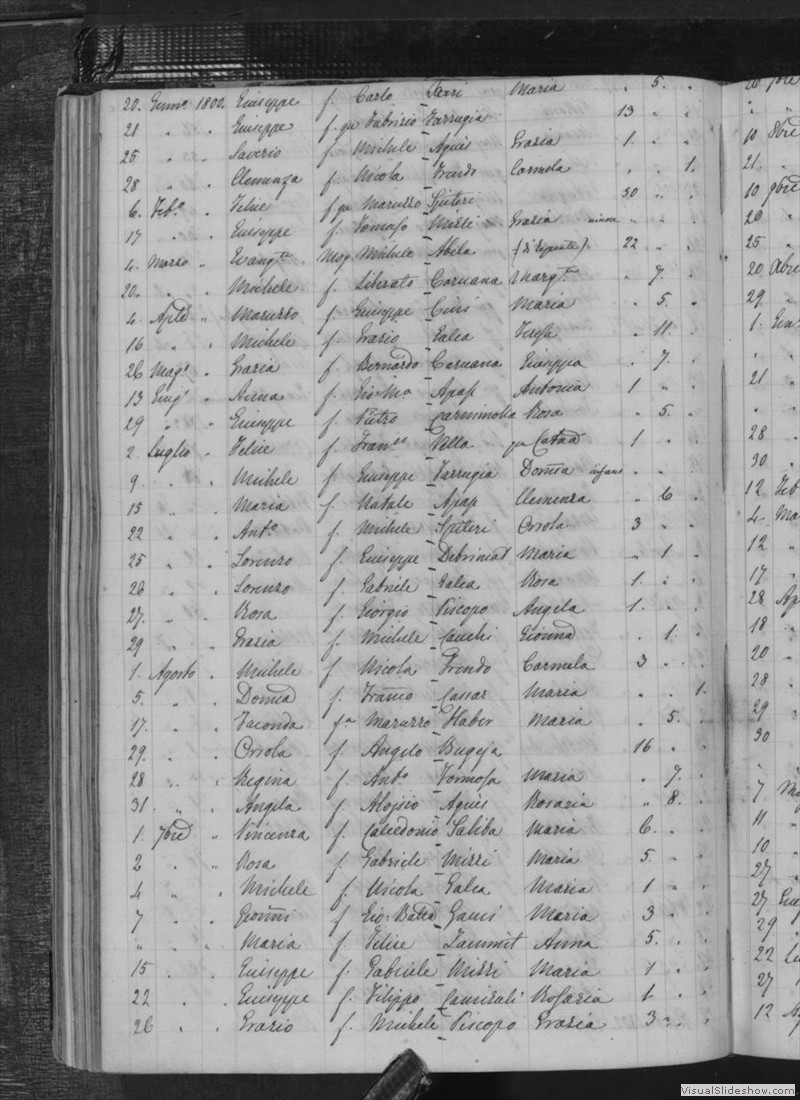 20. Genn.o 1802. Giuseppe f. Carlo Zerri Maria " 5. "
21 " " Giuseppe f. qu Fabrizio Farrugia 13 " "
25 " " Saverio f. Michele Agius Grazia 1. " "
28 " " Clemenza f. Nicola Frendo Carmela " " 1.
6. Feb.o " Felice f qu Maruzzo Spiteri 30 " "
17 " " Giuseppe f. Tomaso Mizzi Grazia " "
4. Marzo " Evang.ta Mog. Michele Abela 22 " "
20. " " Michele f. Liberato Caruana Marg.ta " 7. "
4. Aple " Maruzzo f. Giuseppe Cini Maria " 5. "
16 " " Michele f. Grazio Galea Teresa " 11. "
26 Mag.o " Grazia f. Bernardo Caruana Giuseppa " 7. "
13 Giug.o " Anna f. Gio Ma Apap Antonia 1 " "
29 " " Giuseppe f. Pietro Rosa " 5. "
2. Luglio " Felice f. Fran.co Vella qu Catna 1 " "
9. " " Michele f. Giuseppe Farrugia Domca infans " "
15 " " Maria f. Natale Apap Clemenza " 6 "
22 " " Ant.o f. Michele Spiteri Orsola 3 " "
25 " " Lorenzo f. Giuseppe Debrincat Maria " 1 "
26 " " Lorenzo f. Gabriele Galea Rosa 1. " "
27. " " Rosa f. Giorgio Piscopo Angela 1. " "
29 " " Grazia f. Michele Cauchi Gionna " 1. "
1. Agosto " Michele f. Nicola Frendo Carmela 3 " "
5. " " Domca f. Franco Cassar Maria " " 1.
17. " " Maruzzo Haber Maria " 5. "
29. " " Orsola f. Angelo Bugeja 16 " "
28 " " Regina f. Ant.o Formosa Maria " 7. "
31. " " Angela f. Aloisio Agius Rosaria " 8. "
1. 7bre " Vincenza f. Calcedonio Saliba Maria 6. " "
2 " " Rosa f. Gabriele Mizzi Maria 5. " "
4 " " Michele f. Nicola Galea Maria 1 " "
7 " " Gionni f. Gio: Batta Gauci Maria 3 " "
" " " Maria f. Felice Zammit Anna 5. " "
15 " " Giuseppe f. Gabriele Mizzi Maria 1 " "
22 " " Giuseppe f. Filippo Camisuli Rosaria 1 " "
26 " " Grazio f. Michele Piscopo Grazia 3 " "
10 8bre
21.
10 9bre
20
25
20 Xbre
29
1.
21
28
30
12 Feb
4 Ma
12
17
28 Ap
18
20
28
29
30
7
11
10
27
27
29
22
27
12
VisualSlideshow.com